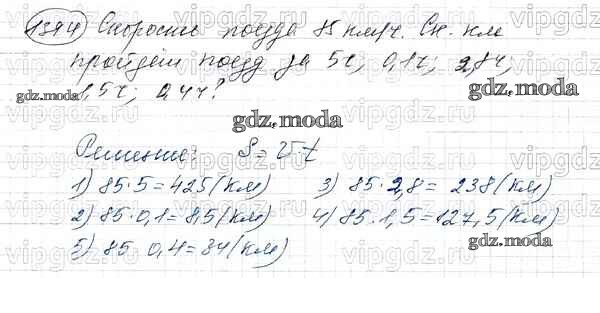 1394 Скорость поезда 85 км/ч. Ск. км
пройдёт поезд за 5ч; 0,1ч; 2,8ч;
1,5ч; 0,4ч?
Решение: S = v t
1) 85·5=425(км) 3) 85·2,8= 238(км)
2) 85·0,1= 8,5(км) 4) 85·1,5=127,5(км)
5) 85 0,4=34(км)
gdz.moda
gdz.moda
gdz.moda
gdz.moda
gdz.moda
vipgdz.ru